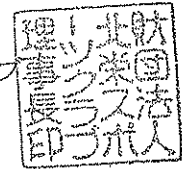 財団法人
北米スポ
ーツクラブ
理事長印